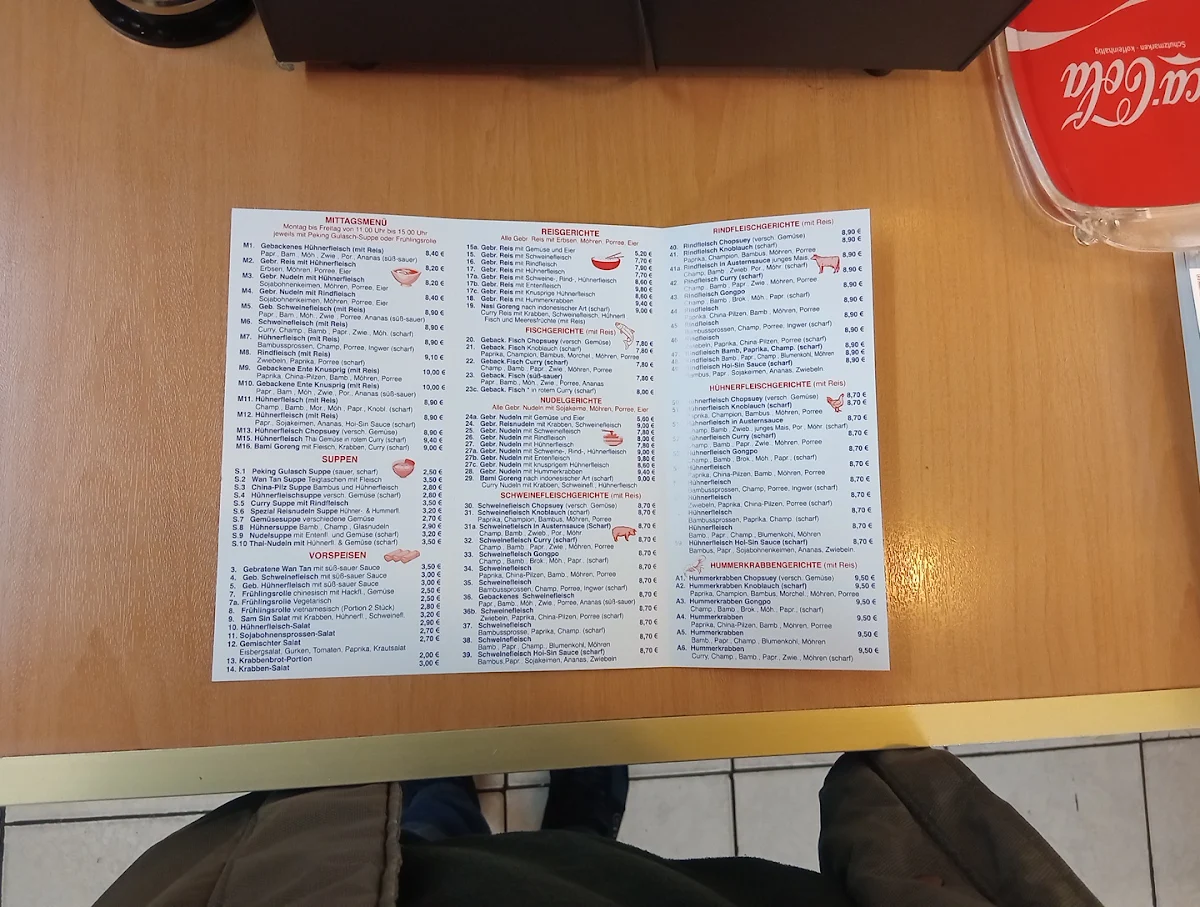 Coca-Cola
Schutzmarken · koffeinhaltig
MITTAGSMENÜ
Montag bis Freitag von 11.00 Uhr bis 15.00 Uhr
jeweils mit Peking Gulasch-Suppe oder Frühlingsrolle
M1. Gebackenes Hühnerfleisch (mit Reis)
Papr., Bam., Möh., Zwie., Por., Ananas (süß-sauer) 8,40 €
M2. Gebr. Reis mit Hühnerfleisch
Erbsen, Möhren, Porree, Eier 8,20 €
M3. Gebr. Nudeln mit Hühnerfleisch
Sojabohnenkeimen, Möhren, Porree, Eier 8,20 €
M4. Gebr. Nudeln mit Rindfleisch
Sojabohnenkeimen, Möhren, Porree, Eier 8,40 €
M5. Geb. Schweinefleisch (mit Reis)
Papr., Bam., Möh., Zwie., Porree, Ananas (süß-sauer) 8,90 €
M6. Schweinefleisch (mit Reis)
Curry, Champ., Bamb., Papr., Zwie., Möh. (scharf) 8,90 €
M7. Hühnerfleisch (mit Reis)
Bambussprossen, Champ., Porree, Ingwer (scharf) 8,90 €
M8. Rindfleisch (mit Reis)
Zwiebeln, Paprika, Porree (scharf) 9,10 €
M9. Gebackene Ente Knusprig (mit Reis)
Paprika, China-Pilzen, Bamb., Möhren, Porree 10,00 €
M10. Gebackene Ente Knusprig (mit Reis)
Papr., Bam., Möh., Zwie., Por., Ananas (süß-sauer) 10,00 €
M11. Hühnerfleisch (mit Reis)
Champ., Bamb., Mor., Möh., Papr., Knobl. (scharf) 8,90 €
M12. Hühnerfleisch (mit Reis)
Papr., Sojakeimen, Ananas, Hoi-Sin Sauce (scharf) 8,90 €
M13. Hühnerfleisch Chopsuey (versch. Gemüse) 8,90 €
M15. Hühnerfleisch Thai Gemüse in rotem Curry (scharf) 9,40 €
M16. Bami Goreng mit Fleisch, Krabben, Curry (scharf) 9,00 €
SUPPEN
S.1 Peking Gulasch Suppe (sauer, scharf) 2,50 €
S.2 Wan Tan Suppe Teigtaschen mit Fleisch 3,50 €
S.3 China-Pilz Suppe Bambus und Hühnerfleisch 2,80 €
S.4 Hühnerfleischsuppe versch. Gemüse (scharf) 2,80 €
S.5 Curry Suppe mit Rindfleisch 3,50 €
S.6 Spezial Reisnudeln Suppe Hühner- & Hummerfl. 3,20 €
S.7 Gemüsesuppe verschiedene Gemüse 2,70 €
S.8 Hühnersuppe Bamb., Champ., Glasnudeln 2,90 €
S.9 Nudelsuppe mit Entenfl. und Gemüse (scharf) 3,20 €
S.10 Thai-Nudeln mit Hühnerfl. & Gemüse (scharf) 3,50 €
VORSPEISEN
3. Gebratene Wan Tan mit süß-sauer Sauce 3,50 €
4. Geb. Schweinefleisch mit süß-sauer Sauce 3,00 €
5. Geb. Hühnerfleisch mit süß-sauer Sauce 3,00 €
7. Frühlingsrolle chinesisch mit Hackfl., Gemüse 2,50 €
7a. Frühlingsrolle Vegetarisch 2,50 €
8. Frühlingsrolle vietnamesisch (Portion 2 Stück) 2,80 €
9. Sam Sin Salat mit Krabben, Hühnerfl., Schweinefl. 3,20 €
10. Hühnerfleisch-Salat 2,90 €
11. Sojabohnensprossen-Salat 2,70 €
12. Gemischter Salat 2,70 €
Eisbergsalat, Gurken, Tomaten, Paprika, Krautsalat
13. Krabbenbrot-Portion 2,00 €
14. Krabben-Salat 3,00 €
REISGERICHTE
Alle Gebr. Reis mit Erbsen, Möhren, Porree, Eier
15a. Gebr. Reis mit Gemüse und Eier 5,20 €
15. Gebr. Reis mit Schweinefleisch 7,70 €
16. Gebr. Reis mit Rindfleisch 7,90 €
17. Gebr. Reis mit Hühnerfleisch 7,70 €
17a. Gebr. Reis mit Schweine-, Rind-, Hühnerfleisch 8,60 €
17b. Gebr. Reis mit Entenfleisch 9,80 €
17c. Gebr. Reis mit Knusprige Hühnerfleisch 8,80 €
18. Gebr. Reis mit Hummerkrabben 9,40 €
19. Nasi Goreng nach indonesischer Art (scharf) 9,00 €
Curry Reis mit Krabben, Schweinefleisch, Hühnerfl
Fisch und Meeresfrüchte (mit Reis)
FISCHGERICHTE (mit Reis)
20. Geback. Fisch Chopsuey (versch. Gemüse) 7,80 €
21. Geback. Fisch Knoblauch (scharf) 7,80 €
Paprika, Champion, Bambus, Morchel, Möhren, Porree
22. Geback. Fisch Curry (scharf) 7,80 €
Champ., Bamb., Papr., Zwie., Möhren, Porree
23. Geback. Fisch (süß-sauer) 7,80 €
Papr., Bamb., Möh., Zwie., Porree, Ananas
23c. Geback. Fisch * in rotem Curry (scharf) 8,00 €
NUDELGERICHTE
Alle Gebr. Nudeln mit Sojakeime, Möhren, Porree, Eier
24a. Gebr. Nudeln mit Gemüse und Eier 5,60 €
24. Gebr. Reisnudeln mit Krabben, Schweinefleisch 9,00 €
25. Gebr. Nudeln mit Schweinefleisch 7,80 €
26. Gebr. Nudeln mit Rindfleisch 8,00 €
27. Gebr. Nudeln mit Hühnerfleisch 7,80 €
27a. Gebr. Nudeln mit Schweine-, Rind-, Hühnerfleisch 9,00 €
27b. Gebr. Nudeln mit Entenfleisch 9,80 €
27c. Gebr. Nudeln mit knusprigem Hühnerfleisch 8,60 €
28. Gebr. Nudeln mit Hummerkrabben 9,40 €
29. Bami Goreng nach indonesischer Art (scharf) 9,00 €
Curry Nudeln mit Krabben, Schweinefl., Hühnerfleisch
SCHWEINEFLEISCHGERICHTE (mit Reis)
30. Schweinefleisch Chopsuey (versch. Gemüse) 8,70 €
31. Schweinefleisch Knoblauch (scharf) 8,70 €
Paprika, Champion, Bambus, Möhren, Porree
31a. Schweinefleisch in Austernsauce (Scharf) 8,70 €
Champ., Bamb., Zwieb., Por., Möhr
32. Schweinefleisch Curry (scharf) 8,70 €
Champ., Bamb., Papr., Zwie., Möhren, Porree
33. Schweinefleisch Gongpo 8,70 €
Champ., Bamb., Brok., Möh., Papr. (scharf)
34. Schweinefleisch 8,70 €
Paprika, China-Pilzen, Bamb., Möhren, Porree
35. Schweinefleisch 8,70 €
Bambussprossen, Champ., Porree, Ingwer (scharf)
36. Gebackenes Schweinefleisch 8,70 €
Papr., Bamb., Möh., Zwie., Porree, Ananas (süß-sauer)
36b. Schweinefleisch 8,70 €
Zwiebeln, Paprika, China-Pilzen, Porree (scharf)
37. Schweinefleisch 8,70 €
Bambussprosse, Paprika, Champ. (scharf)
38. Schweinefleisch 8,70 €
Bamb., Papr., Champ., Blumenkohl, Möhren
39. Schweinefleisch Hoi-Sin Sauce (scharf) 8,70 €
Bambus,Papr., Sojakeimen, Ananas, Zwiebeln
RINDFLEISCHGERICHTE (mit Reis)
40. Rindfleisch Chopsuey (versch. Gemüse) 8,90 €
41. Rindfleisch Knoblauch (scharf) 8,90 €
Paprika, Champion, Bambus, Möhren, Porree
41a. Rindfleisch in Austernsauce junges Mais, 8,90 €
Champ., Bamb., Zwieb., Por., Möhr. (scharf)
42. Rindfleisch Curry (scharf) 8,90 €
Champ., Bamb., Papr., Zwie., Möhren, Porree
43. Rindfleisch Gongpo 8,90 €
Champ., Bamb., Brok., Möh., Papr. (scharf)
44. Rindfleisch 8,90 €
Paprika, China-Pilzen, Bamb., Möhren, Porree
45. Rindfleisch 8,90 €
Bambussprossen, Champ., Porree, Ingwer (scharf)
Rindfleisch 8,90 €
Zwiebeln, Paprika, China-Pilzen, Porree (scharf)
Rindfleisch Bamb., Paprika, Champ. (scharf) 8,90 €
Rindfleisch Bamb., Papr., Champ., Blumenkohl, Möhren 8,90 €
Rindfleisch Hoi-Sin Sauce (scharf) 8,90 €
Bambus, Papr., Sojakeimen, Ananas, Zwiebeln
HÜHNERFLEISCHGERICHTE (mit Reis)
Hühnerfleisch Chopsuey (versch. Gemüse) 8,70 €
Hühnerfleisch Knoblauch (scharf) 8,70 €
Paprika, Champion, Bambus, Möhren, Porree
Hühnerfleisch in Austernsauce
Champ., Bamb., Zwieb., junges Mais, Por., Möhr. (scharf) 8,70 €
Hühnerfleisch Curry (scharf) 8,70 €
Champ., Bamb., Papr., Zwie., Möhren, Porree
Hühnerfleisch Gongpo 8,70 €
Champ., Bamb., Brok., Möh., Papr., (scharf)
Hühnerfleisch 8,70 €
Paprika, China-Pilzen, Bamb., Möhren, Porree
Hühnerfleisch 8,70 €
Bambussprossen, Champ., Porree, Ingwer (scharf)
Hühnerfleisch 8,70 €
Zwiebeln, Paprika, China-Pilzen, Porree (scharf)
Hühnerfleisch 8,70 €
Bambussprossen, Paprika, Champ. (scharf)
Hühnerfleisch 8,70 €
Bamb., Papr., Champ., Blumenkohl, Möhren
Hühnerfleisch Hoi-Sin Sauce (scharf) 8,70 €
Bambus, Papr., Sojabohnenkeimen, Ananas, Zwiebeln
HUMMERKRABBENGERICHTE (mit Reis)
A1. Hummerkrabben Chopsuey (versch. Gemüse) 9,50 €
A2. Hummerkrabben Knoblauch (scharf) 9,50 €
Paprika, Champion, Bambus, Morchel., Möhren, Porree
A3. Hummerkrabben Gongpo 9,50 €
Champ., Bamb., Brok., Möh., Papr., (scharf)
A4. Hummerkrabben 9,50 €
Paprika, China-Pilzen, Bamb., Möhren, Porree
A5. Hummerkrabben 9,50 €
Bamb., Papr., Champ., Blumenkohl, Möhren
A6. Hummerkrabben 9,50 €
Curry, Champ., Bamb., Papr., Zwie., Möhren (scharf)